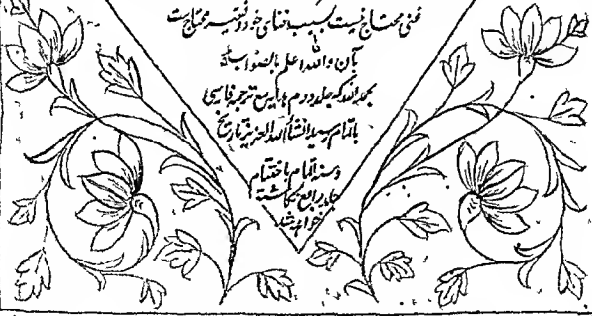 غنی محتاج نیست بسبب غنای خود و فقیر محتاج است
بآن والله اعلم بالصواب
بحمد الله که جلد دوم هدایه ترجمه فارسی
باتمام رسید انشاء الله العزیز تاریخ
و سنه اتمام باختتام
جلد چهارم نگاشته
خواهد شد